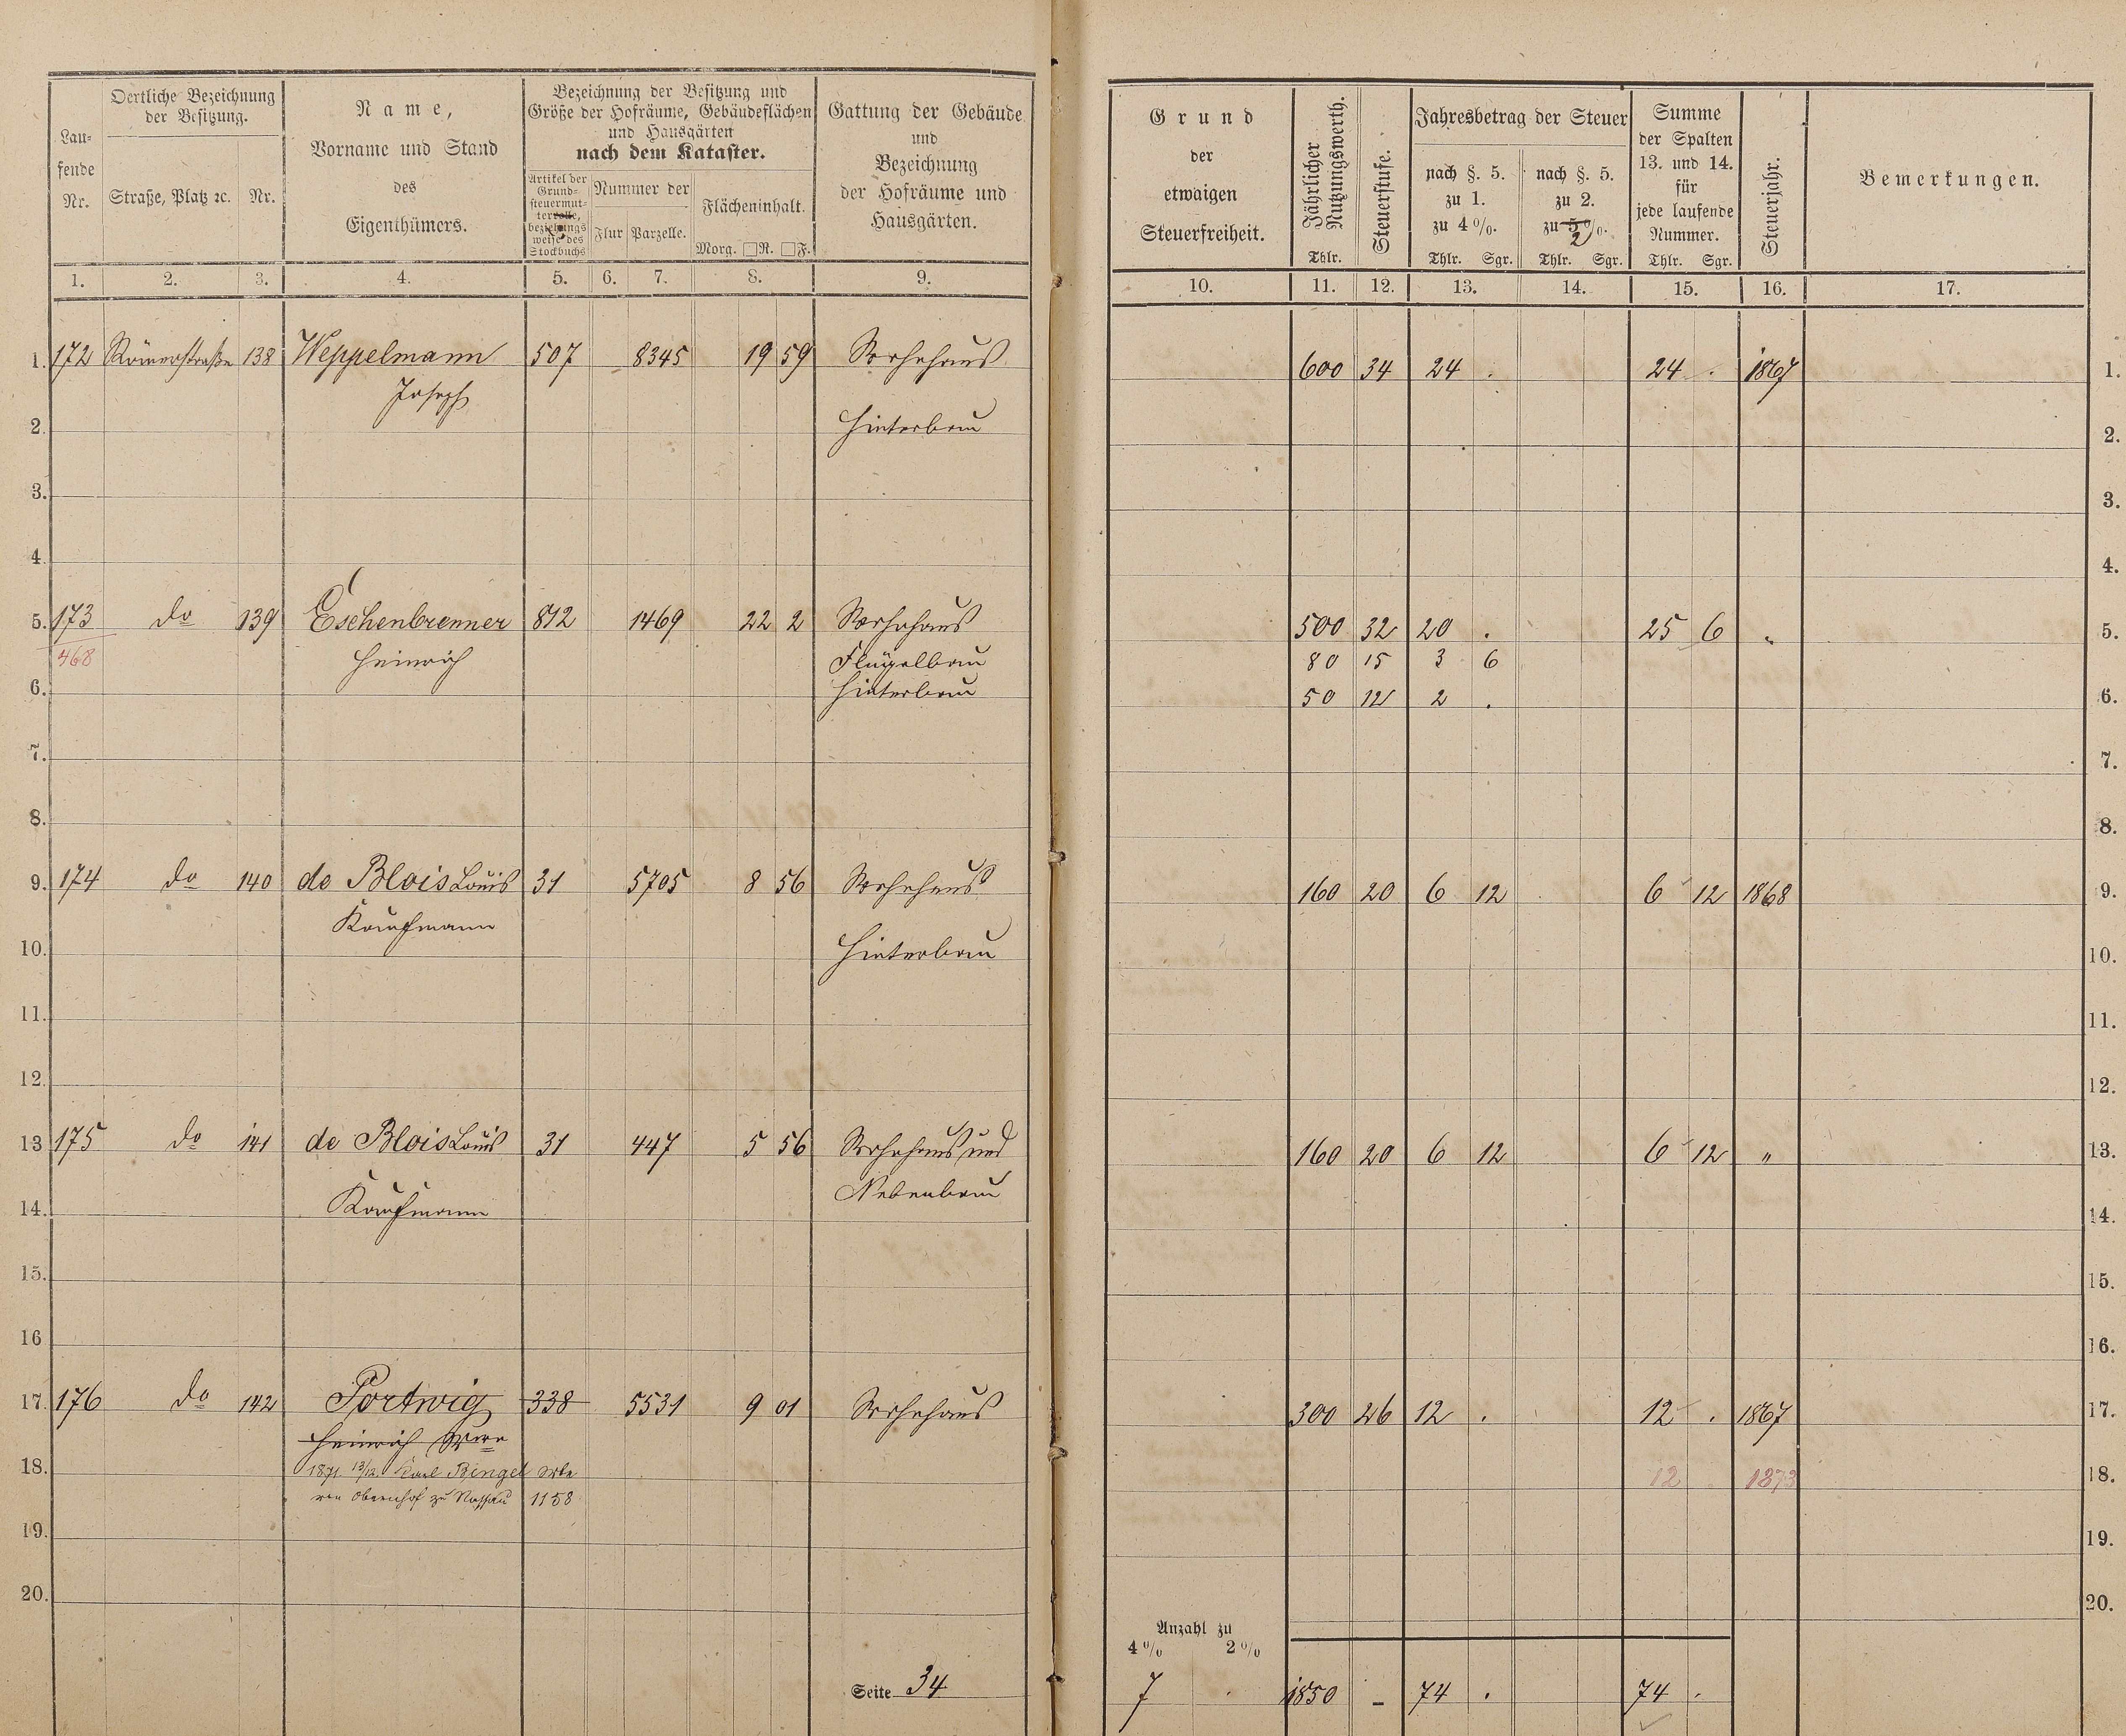 Lau-
fende
Nr.
Oertliche Bezeichnung
der Besitzung.
Straße, Platz ꝛc. Nr.
Name,
Vorname und Stand
des
Eigenthümers.
Bezeichnung der Besitzung und
Größe der Hofräume, Gebäudeflächen
und Hausgärten
nach dem Kataster.
Artikel der
Grund-
steuermut-
terrolle,
beziehungs
weise des
Stockbuchs
Nummer der
Flur Parzelle.
Flächeninhalt.
Morg. □R. □F.
Gattung der Gebäude
und
Bezeichnung
der Hofräume und
Hausgärten.
1. 2. 3. 4. 5. 6. 7. 8. 9.
1. 172 Römerstraße 138 Weppelmann 507 8345 19 59 Wohnhaus
Joseph
2. Hinterbau
3.
4.
5. 173 do 139 Eschenbrenner 812 1469 22 2 Wohnhaus
468 Heinrich Flügelbau
6. Hinterbau
7.
8.
9. 174 do 140 de Blois Louis 31 5705 8 56 Wohnhaus
Kaufmann
10. Hinterbau
11.
12.
13 175 do 141 de Blois Louis 31 447 5 56 Wohnhaus und
Nebenbau
14. Kaufmann
15.
16
17. 176 do 142 Portwig 338 5531 9 01 Wohnhaus
Heinrich
18. 1871 13/12. Karl Bingel
von Obernhof zu Nassau 1158
19.
20.
Seite 34
Grund
der
etwaigen
Steuerfreiheit.
Jährlicher
Nutzungswerth.
Thlr.
Steuerstufe.
Jahresbetrag der Steuer
nach §. 5.
zu 1.
zu 4%.
Thlr. Sgr.
nach §. 5.
zu 2.
zu 5%.
2
Thlr. Sgr.
Summe
der Spalten
13. und 14.
für
jede laufende
Nummer.
Thlr. Sgr.
Steuerjahr.
Bemerkungen.
10. 11. 12. 13. 14. 15. 16. 17.
600 34 24 . 24 . 1867 1.
2.
3.
4.
500 32 20 . 25 6 " 5.
80 15 3 6
50 12 2 . 6.
7.
8.
160 20 6 12 6 12 1868 9.
10.
11.
12.
160 20 6 12 6 12 " 13.
14.
15.
16.
300 26 12 . 12 . 1867 17.
12 . 1873 18.
19.
20.
Anzahl zu
4% 2%
7 . 1850 - 74 . 74 .